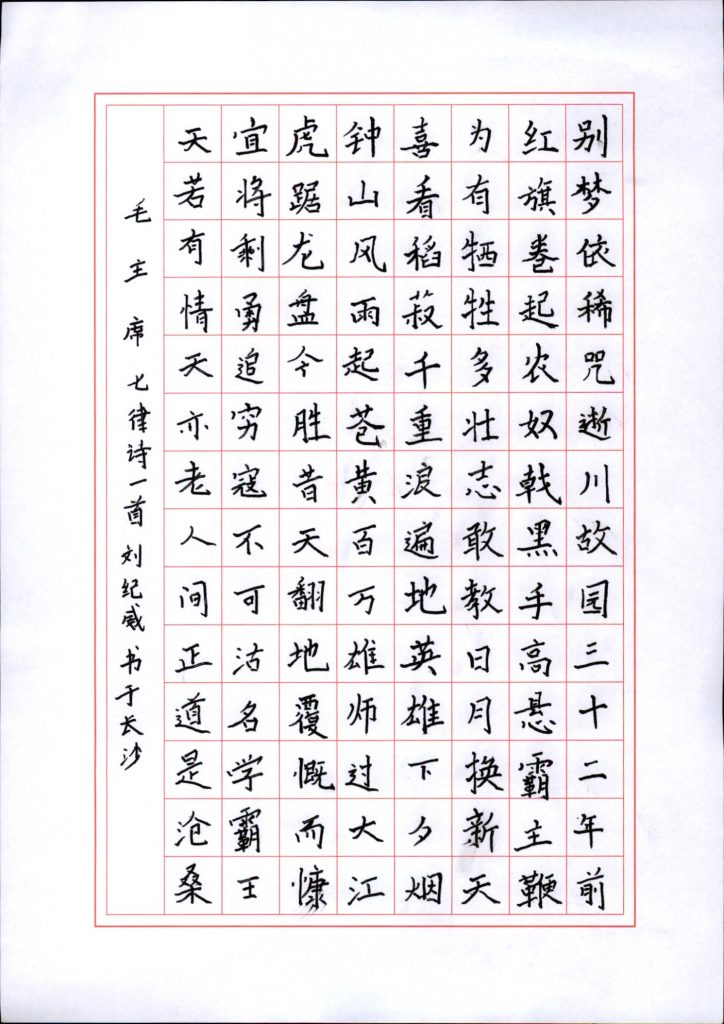 别梦依稀咒逝川故园三十二年前
红旗卷起农奴戟黑手高悬霸主鞭
为有牺牲多壮志敢教日月换新天
喜看稻菽千重浪遍地英雄下夕烟
钟山风雨起苍黄百万雄师过大江
虎踞龙盘今胜昔天翻地覆慨而慷
宜将剩勇追穷寇不可沽名学霸王
天若有情天亦老人间正道是沧桑
毛主席七律诗一首刘纪威书于长沙